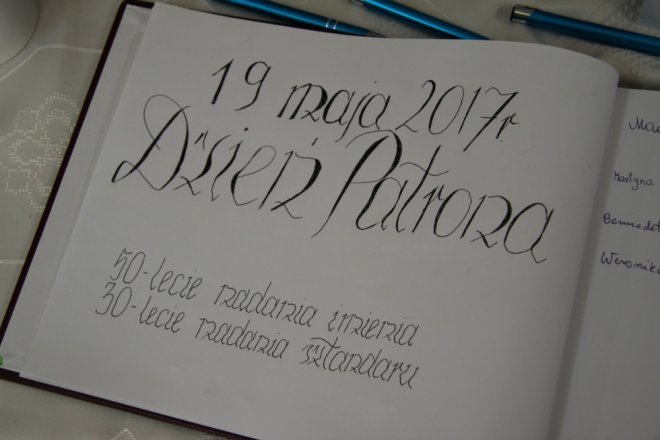 19 maja 2017r.
Dzień Patrona
50-lecie nadania imienia
30-lecie nadania sztandaru
Martyna
Bernadet
Weronika